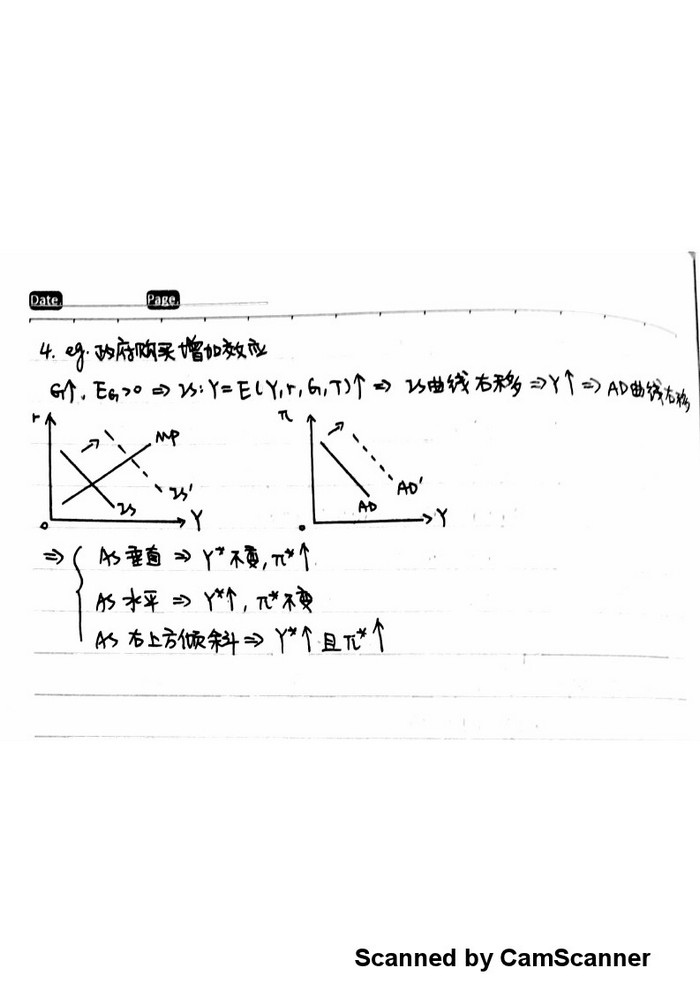 Date.
Page.
4. eg. 政府购买增加效应
G↑, E_G>0 ⇒ IS: Y=E(Y,r,G,T)↑ ⇒ IS曲线右移 ⇒Y↑ ⇒ AD曲线右移
r
MP
IS
IS'
Y
0
π
AD
AD'
Y
⇒ { AS 垂直 ⇒ Y* 不变, π*↑
AS 水平 ⇒ Y*↑, π*不变
AS 右上方倾斜 ⇒ Y*↑ 且 π*↑
Scanned by CamScanner